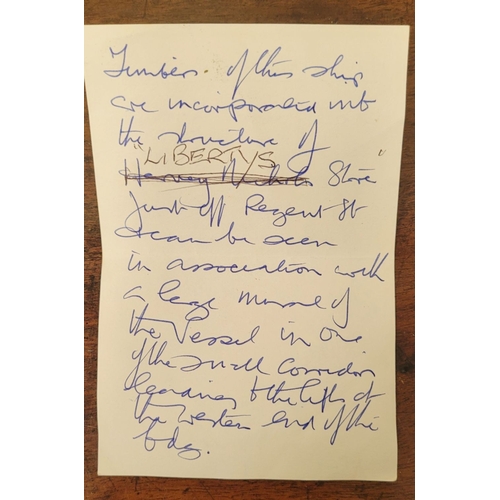 Timbers of this ship
are incorporated into
the structure of
"LIBERTYS
Harvey Nichols Store"
just off Regent St
& can be seen
in association with
a large mural of
the Vessel in one
of the small corridors
leading to the lifts at
the western end of the
bdg.